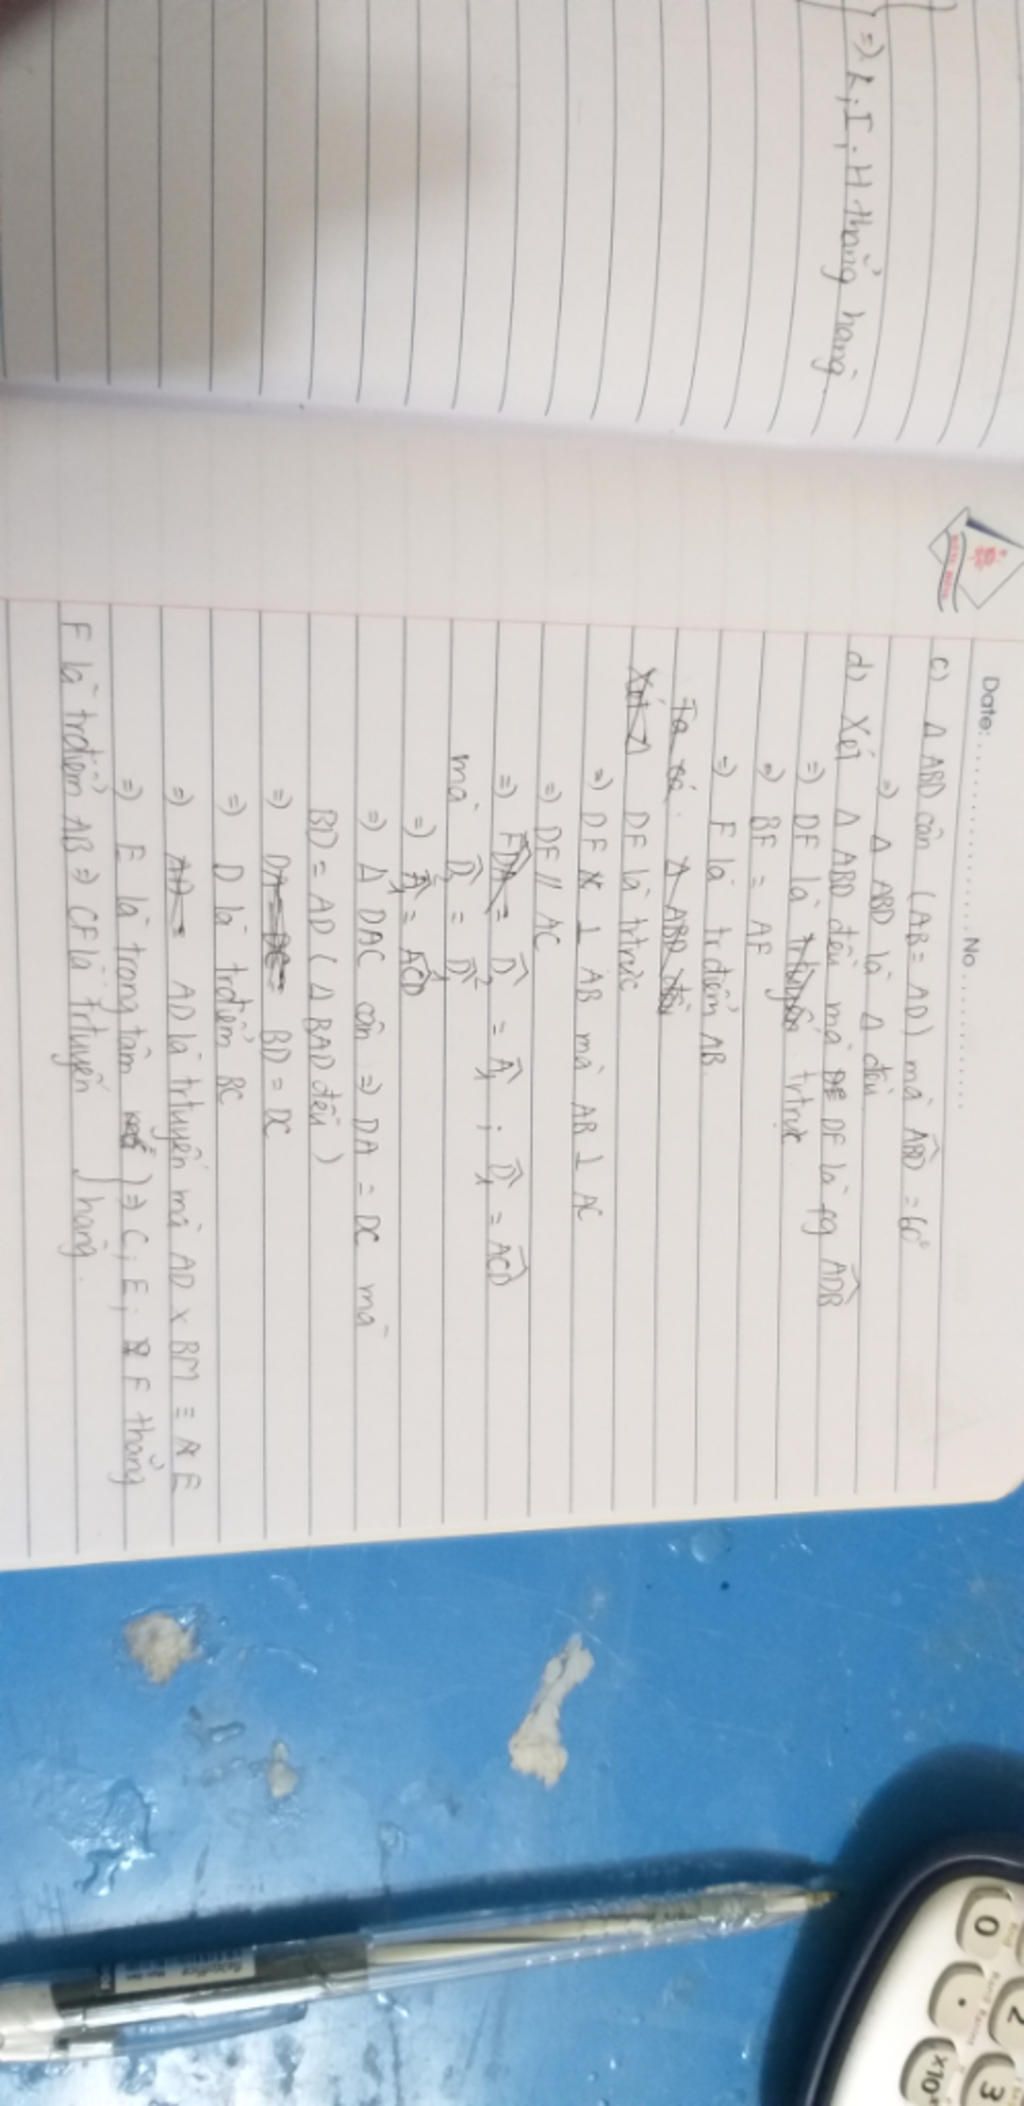 =) K, I, H thẳng hàng
Date: No
c) Δ ABD cân (AB = AD) mà ABD = 60°
=) Δ ABD là Δ đều
d) Xét Δ ABD đều mà DF là fg ADB
=) DF là trtrực
=) BF = AF
=) F là trđiểm AB
Ta có. Δ ABD đều
Xét Δ DF là trtrực
=) DF ⊥ AB mà AB ⊥ AC
=) DF // AC
=) FDA = D2 = A1 ; D1 = ACD
mà D2 = D1
=) A1 = ACD
=) Δ DAC cân => DA = DC mà
BD = AD (Δ BAD đều)
=) DA = DC = BD = DC
=) D là trđiểm BC
=) AD là trtuyến mà AD x BM = E
=) E là trọng tâm } => C; E; F thẳng
F là trđiểm AB => CF là trtuyến hàng.
0
.
2
x10
3